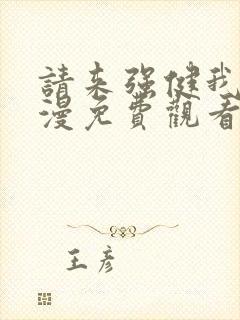 請来强健我
漫免費觀看
王彦